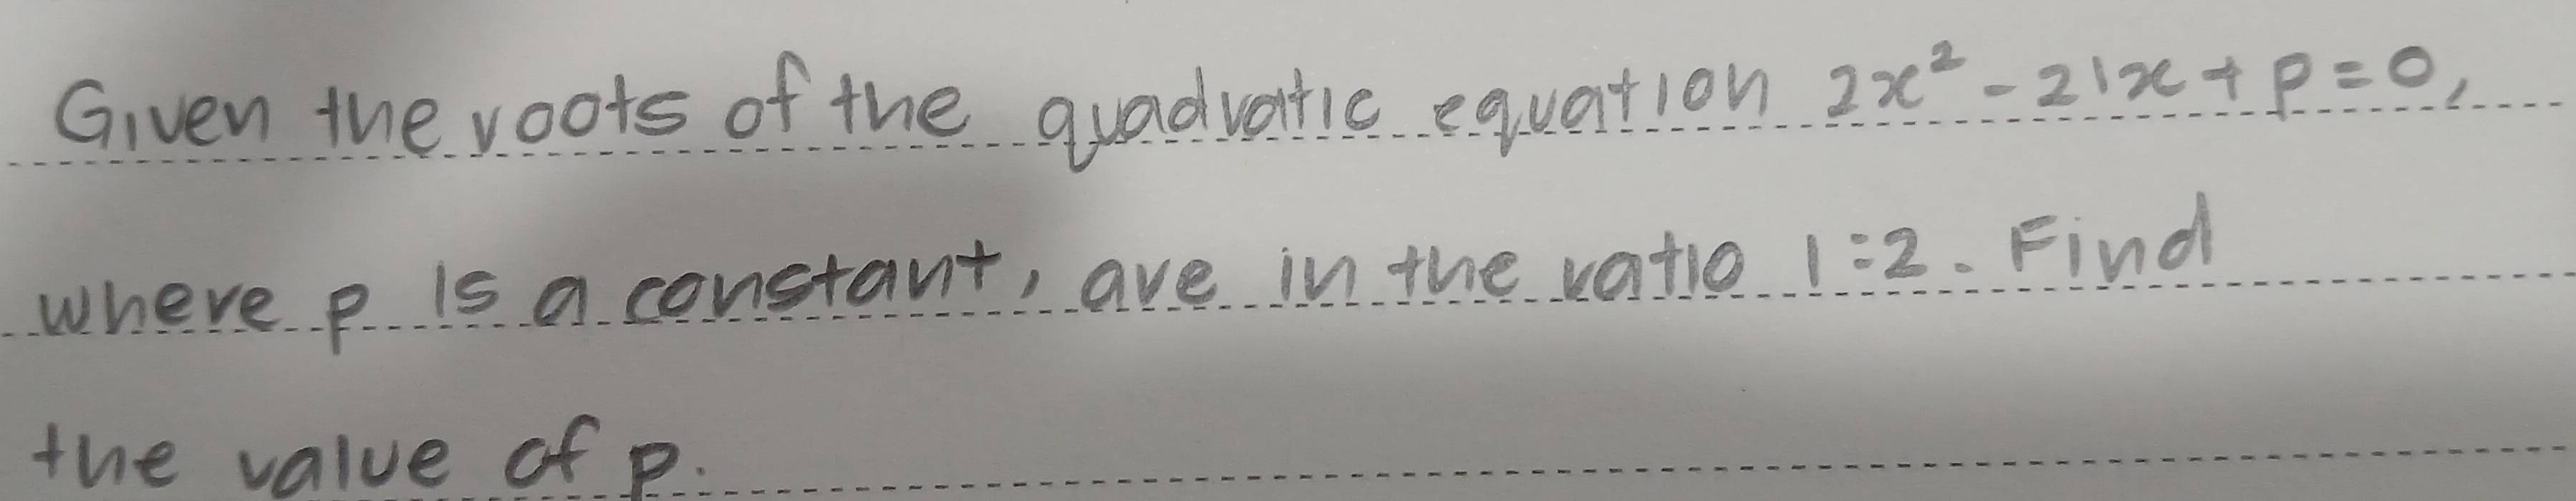 Given the roots of the quadratic equation 2x² - 21x + p = 0,
where p is a constant, are in the ratio 1:2. Find
the value of p.